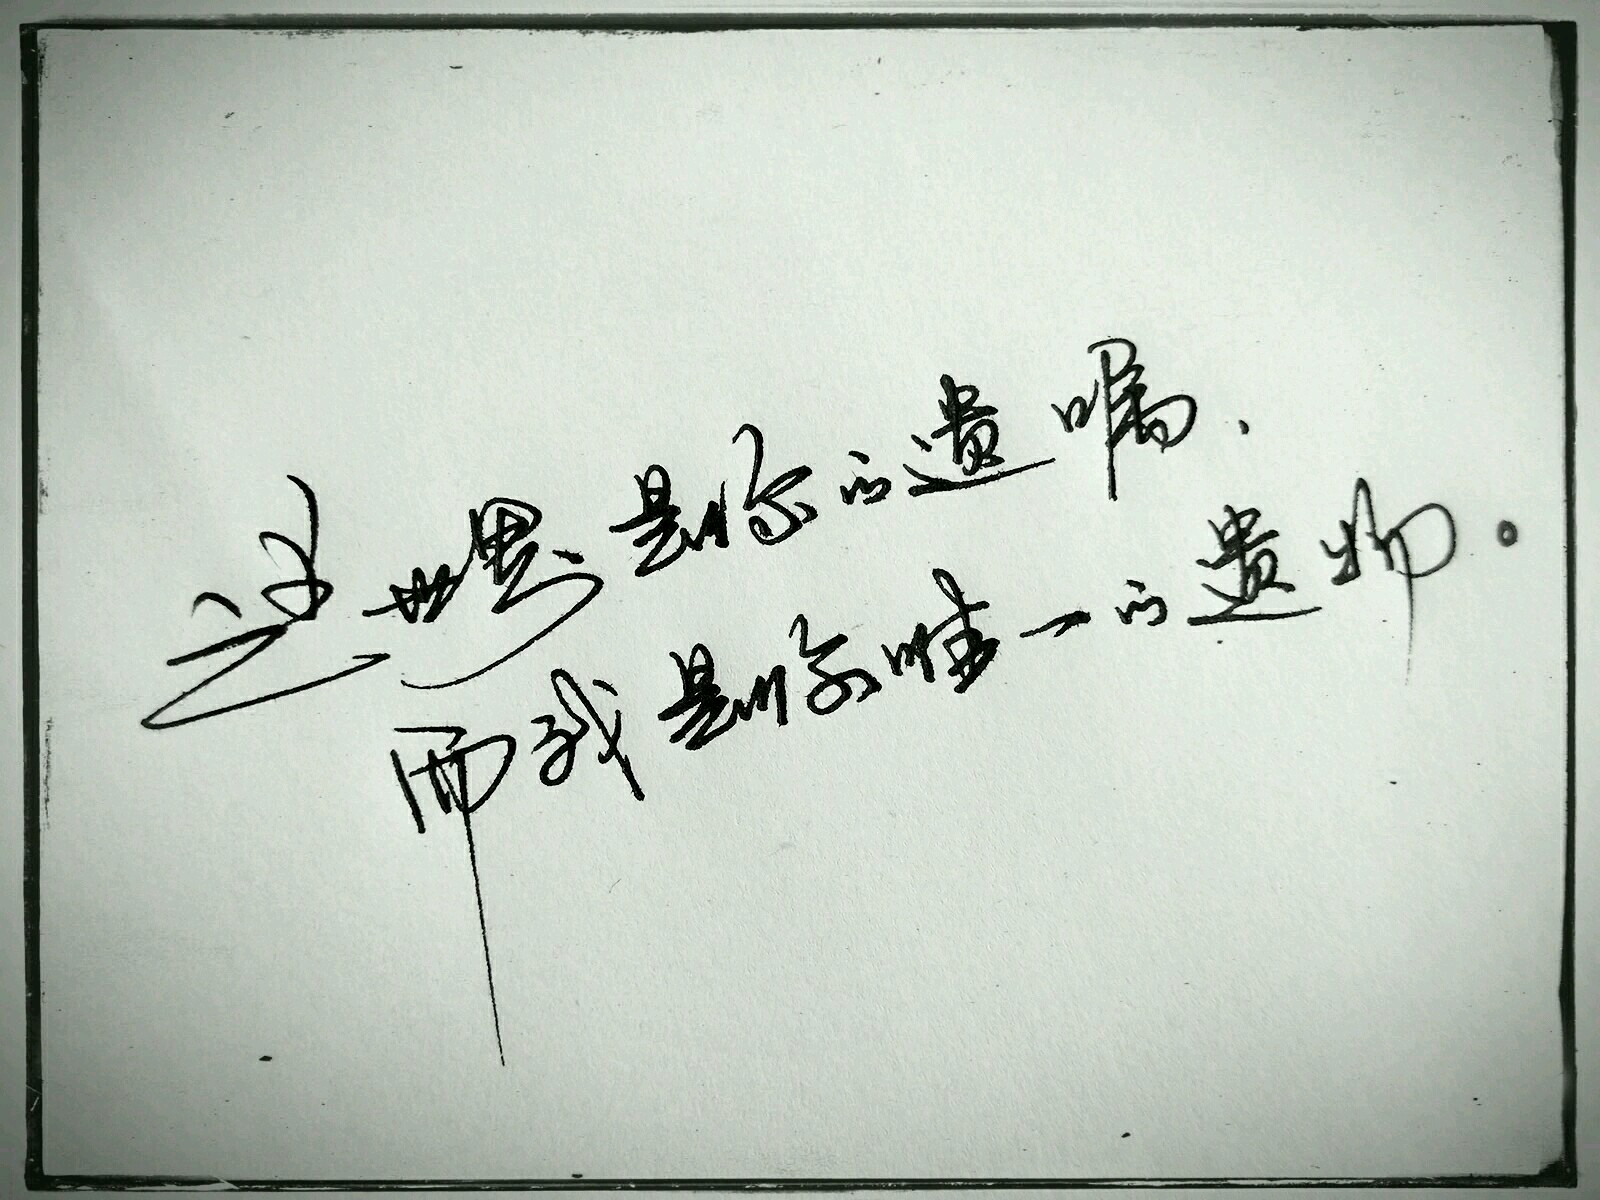 这世界是你的遗嘱、
而我是你唯一的遗物。